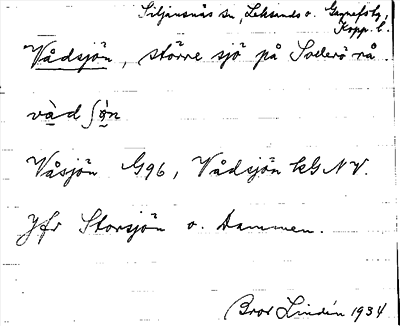 Siljansnäs sn, Leksands o. Gagnefs tg,
Kopp. l.
Vådsjön, större sjö på Soderö rå.
vàd ʃǫ̀n
Våsjön G96, Vådsjön kG NV.
Jfr Storsjön o. Dammen.
Bror Lindén 1934